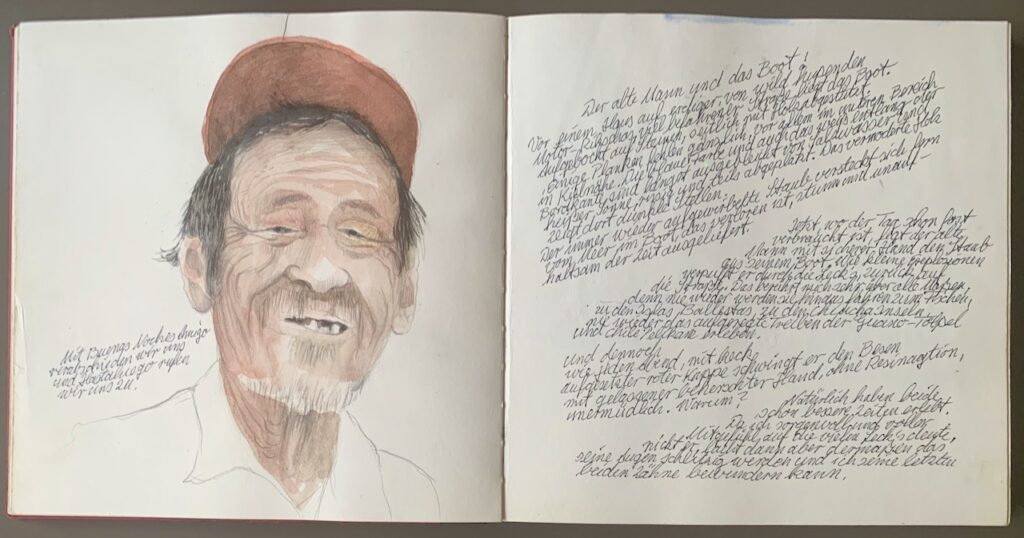 Mit Buenas Noches Amigo
verabschieden wir uns
und Hasta luego rufen
wir uns zu.
Der alte Mann und das Boot!
Vor einem Haus auf erdiger, von wild hupenden
Motor-Rikschas viel befahrener Straße liegt das Boot.
Aufgebockt auf Strunk, seitlich mit Holz abgestützt.
Einige Planken fehlen gänzlich, vor allem im unteren Bereich
in Kielnähe. Die blaue Farbe und auch das Weiß entlang der
Bordkante, sind längst ausgelaugt von Salzwasser und
heißer Sonne, rissig und teils abgeplatzt. Das vermoderte Holz
zeigt dort dunkle Stellen.
Der immer wieder aufgewirbelte Staub versteckt sich fern
vom Meer im Boot, das verloren ist, stumm und unauf-
haltsam der Zeit ausgeliefert.
Jetzt, wo der Tag schon fast
verbraucht ist, fegt der alte
Mann mit sicherer Hand den Staub
aus seinem Boot. Wie kleine Explosionen
verpufft er durch die Lecks, zurück auf
die Straße. Das berührt mich sehr, über alle Maßen,
denn nie wieder werden sie hinausfahren zum Fischen,
zu den Islas Ballestas, zu den Chincha Inseln,
nie wieder das aufgeregte Treiben der Guano-Tölpel
und Chile Pelikane erleben.
und dennoch
wie jeden Abend, mit keck
aufgesetzter roter Kappe schwingt er den Besen
mit gelassener beherrschter Hand, ohne Resignation,
unermüdlich. Warum?
Natürlich haben beide
schon bessere Zeiten erlebt.
Da ich sorgenvoll und voller
Mitgefühl, auf die vielen Lecks deute,
nickt er, lacht dann aber dermaßen, das
seine Augen schlitzig werden und ich seine letzten
beiden Zähne bewundern kann.